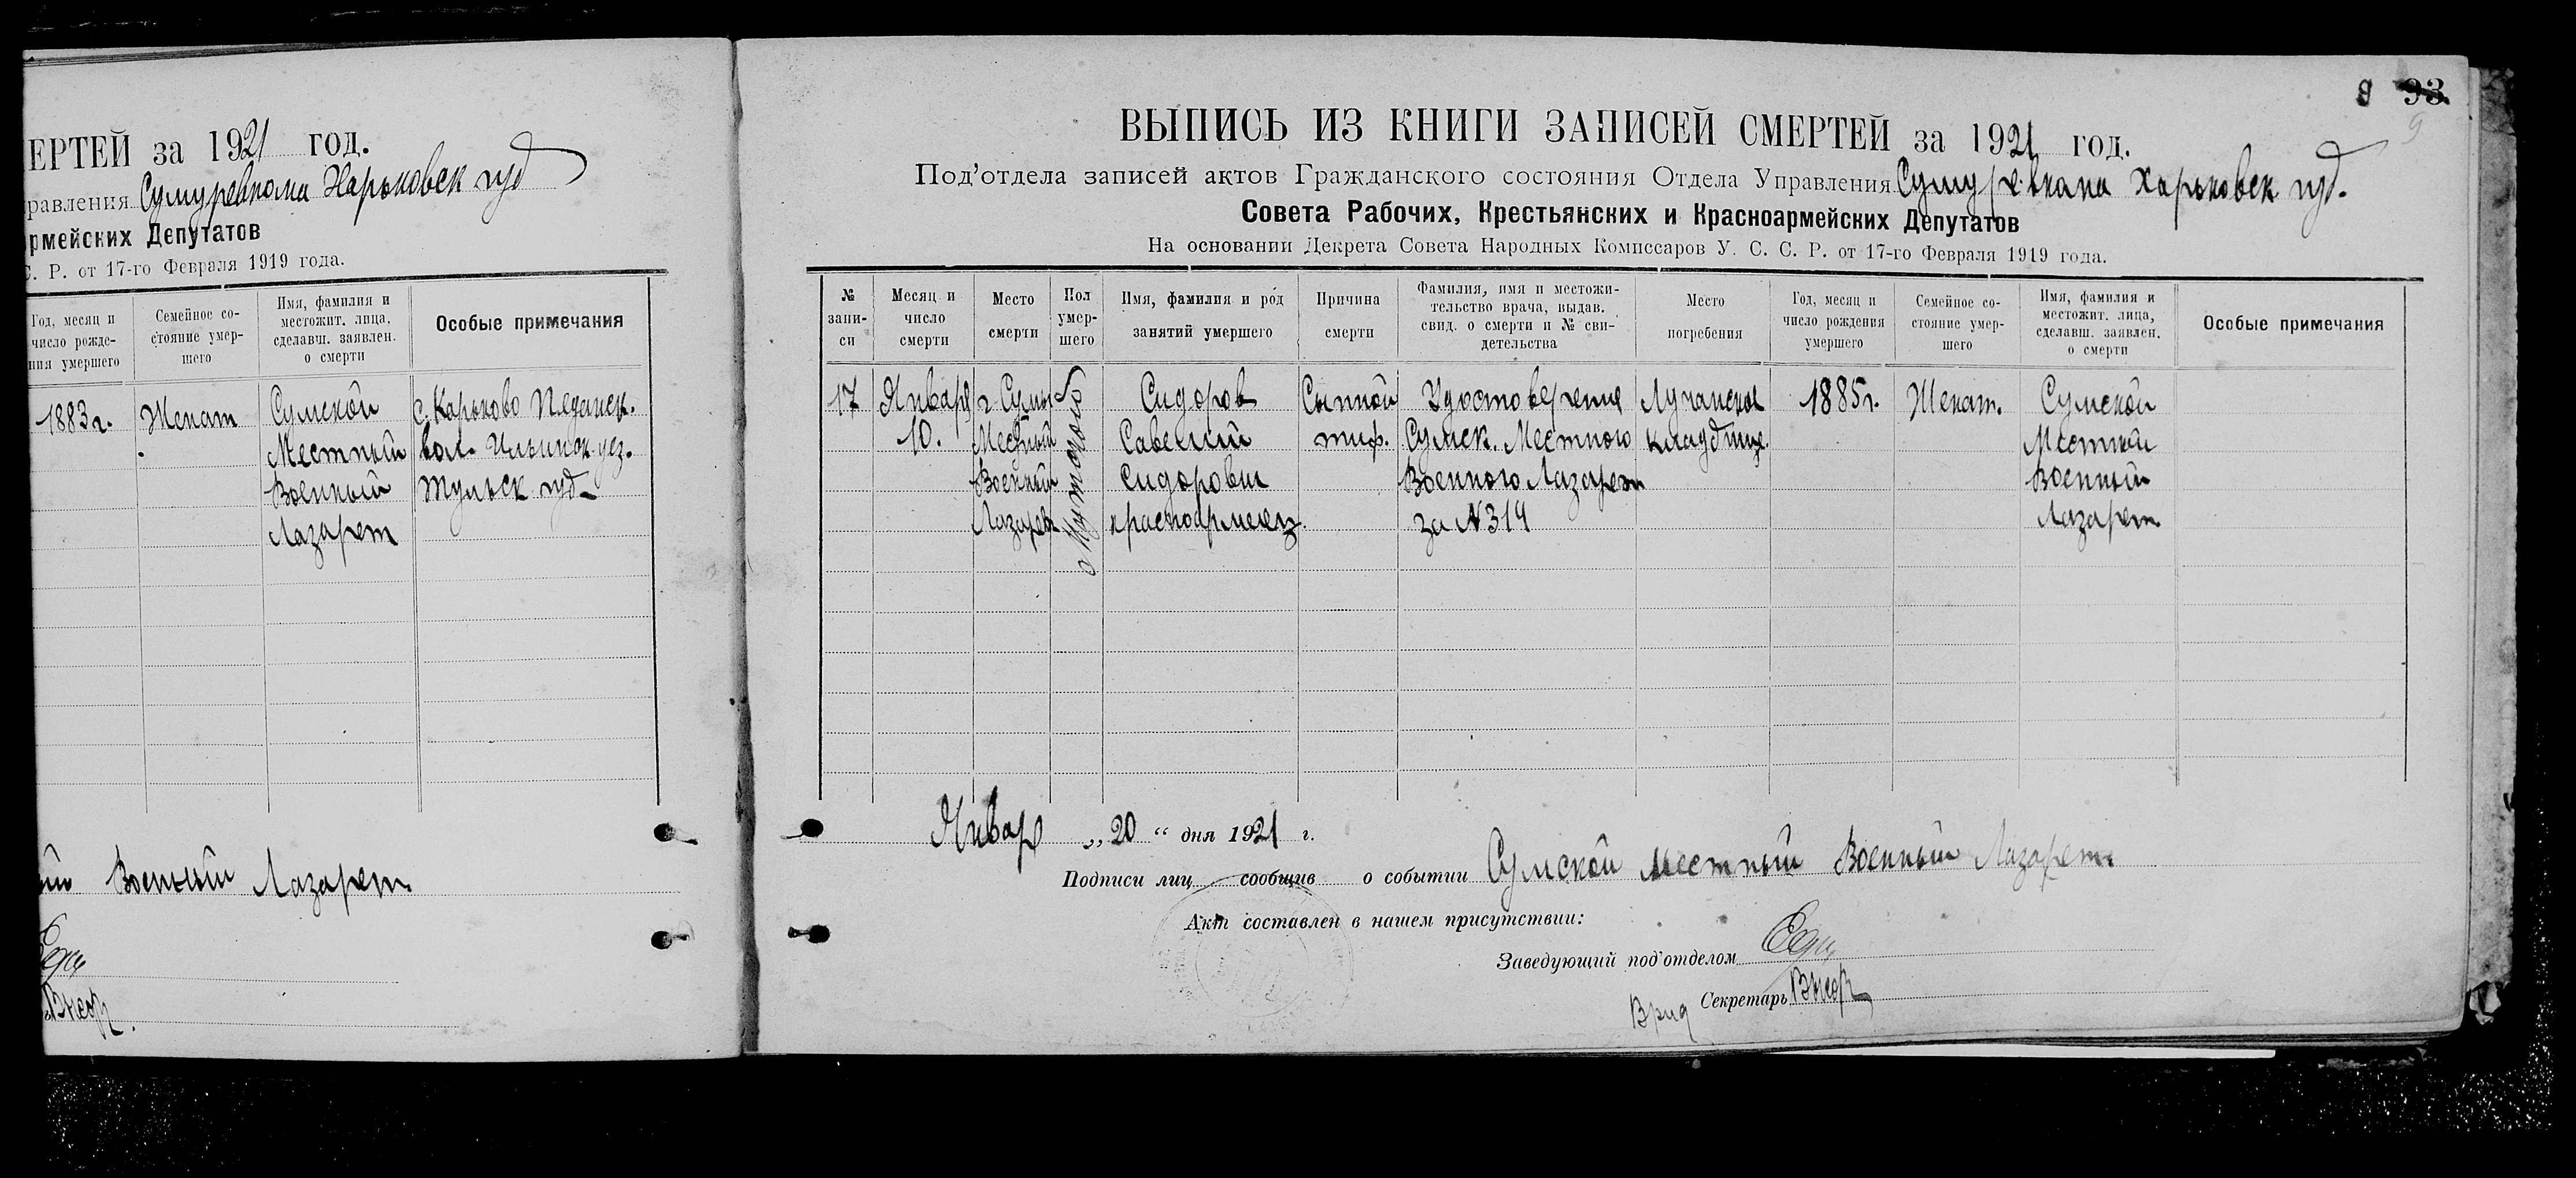 ЕРТЕЙ за 1921 год.
равления Сумуревкома Харьковск губ
рмейских Депутатов
С. Р. от 17-го Февраля 1919 года.
Год, месяц и число рожде- ния умершего
Семейное со- стояние умер- шего
Имя, фамилия и местожит. лица, сделавш. заявлен. о смерти
Особые примечания
1883 г. Женат Сумской с. Карьково
Местный вол.
Военный Тульск губ.
Лазарет
ый Военный Лазарет
9 93
9
ВЫПИСЬ ИЗ КНИГИ ЗАПИСЕЙ СМЕРТЕЙ за 1921 год.
Под'отдела записей актов Гражданского состояния Отдела Управления Сумуревкома Харьковск губ.
Совета Рабочих, Крестьянских и Красноармейских Депутатов
На основании Декрета Совета Народных Комиссаров У. С. С. Р. от 17-го Февраля 1919 года.
№ запи- си
Месяц и число смерти
Место смерти
Пол умер- шего
Имя, фамилия и род занятий умершего
Причина смерти
Фамилия, имя и местожи- тельство врача, выдав. свид. о смерти и № сви- детельства
Место погребения
Год, месяц и число рождения умершего
Семейное со- стояние умер- шего
Имя, фамилия и местожит. лица, сделавш. заявлен. о смерти
Особые примечания
17 Январь г. Сумы Мужского Сидоров Сыпной Удостоверение Лучанское 1885 г. Женат. Сумской
10. Местный Савелий тиф. Сумск. Местного кладбище. Местный
Военный Сидорович Военного Лазарет Военный
Лазарет красноармеец. за № 314 Лазарет
Январ „20“ дня 1921 г.
Подписи лиц сообщив о событии Сумской местный Военный Лазарет
Акт составлен в нашем присутствии:
Заведующий под'отделом
Врид Секретарь